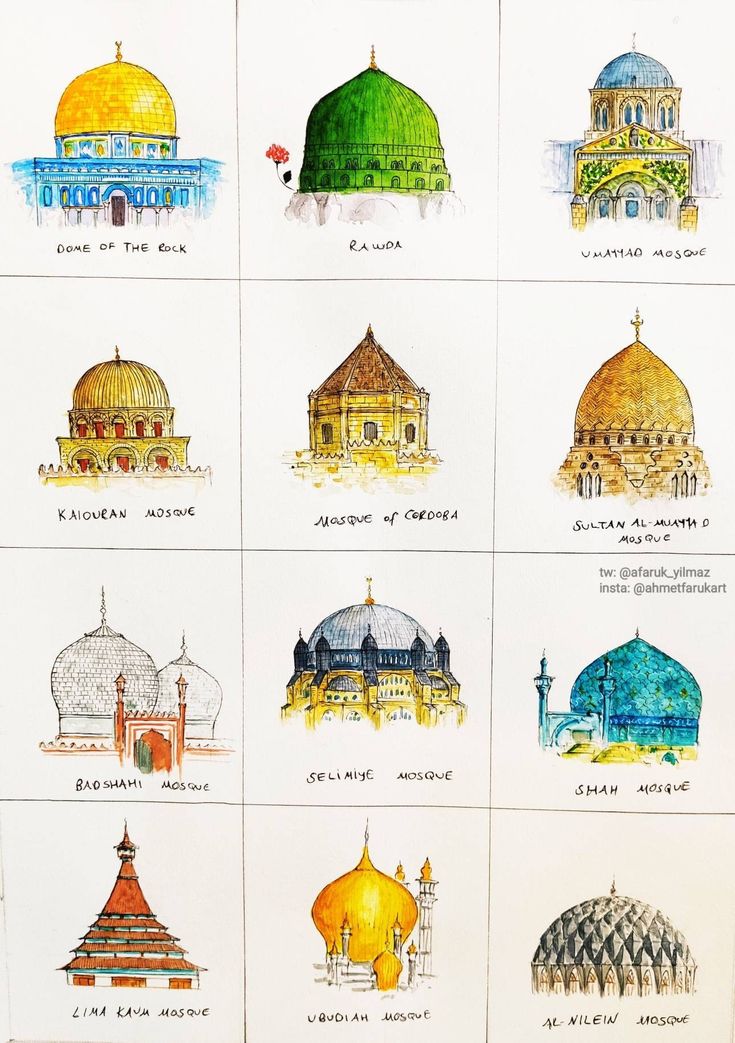 DOME OF THE ROCK
RAWDA
UMAYYAD MOSQUE
KAIOURAN MOSQUE
MOSQUE of CORDOBA
SULTAN AL-MUAYYAD
MOSQUE
tw: @afaruk_yilmaz
insta: @ahmetfarukart
BADSHAHI MOSQUE
SELIMIYE MOSQUE
SHAH MOSQUE
LIMA KAUM MOSQUE
UBUDIAH MOSQUE
AL-NILEIN MOSQUE